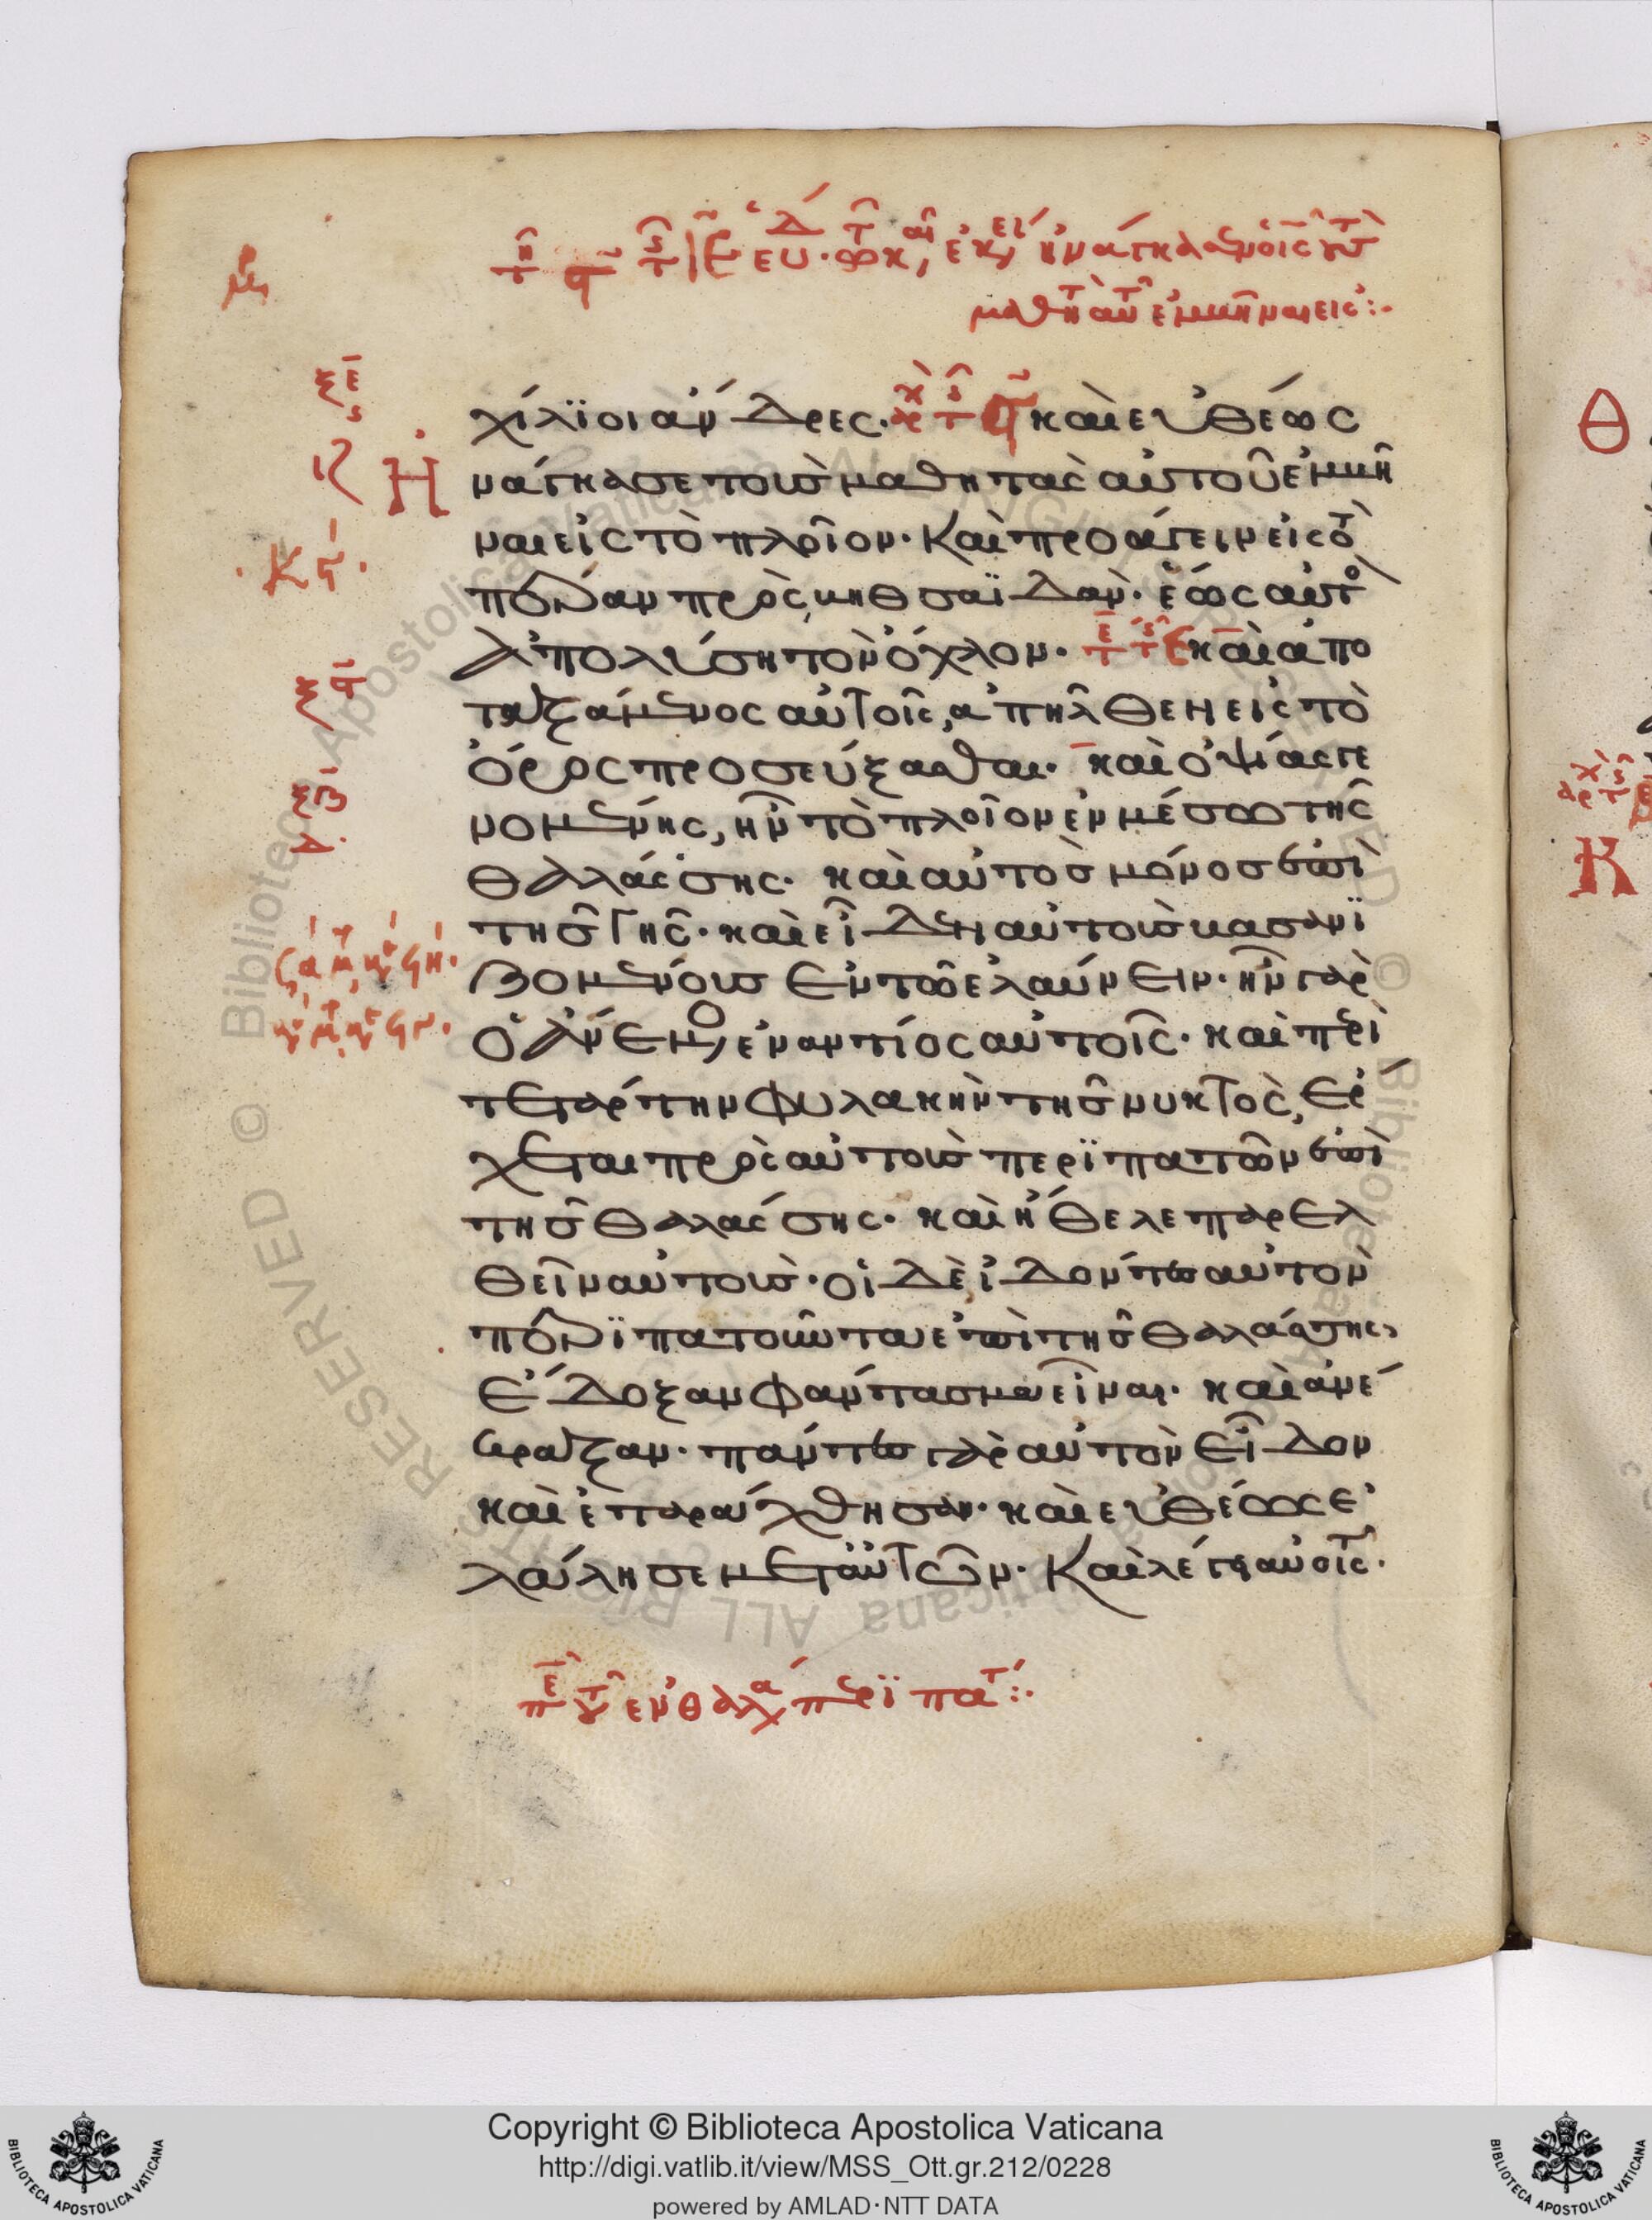 χίλϊοι ἄνδρες. καὶ εὐθέως
Ἠνάγκασε τοὺς μαθητὰς αὐτοῦ ἐμβῆ
ναι εἰς τὸ πλοῖον. Καὶ προάγειν εἰς τὸ
πέραν πρὸς βηθσαϊδάν. ἕως αὐτὸς
ἀπολύση τὸν ὄχλον. καὶ ἀπο
ταξάμενος αὐτοῖς, ἀπῆλθεν εἰς τὸ
ὄρος προσεύξασθαι. καὶ ὀψίας γε
νομένης, ἦν τὸ πλοῖον ἐν μέσω τῆς
θαλάσσης. καὶ αὐτὸς μόνος ἐπὶ
τῆς γῆς. καὶ εἶδεν αὐτοὺς βασανϊ
ζομένους ἐν τῶ ἐλαύνειν. ἦν γὰρ
ὁ ἄνεμος ἐναντίος αὐτοῖς. καὶ περὶ
τετάρτην φυλακὴν τῆς νυκτὸς, ἔρ
χεται πρὸς αὐτοὺς περϊπατῶν ἐπὶ
τῆς θαλάσσης. καὶ ἤθελε παρελ
θεῖν αὐτούς. οἱ δὲ ἰδόντες αὐτὸν
περϊπατοῦντα ἐπὶ τῆς θαλάσσης,
ἔδοξαν φάντασμα εἶναι. καὶ ἀνέ
κραξαν. πάντες γὰρ αὐτὸν εἶδον
καὶ ἐταράχθησαν. καὶ εὐθέως ἐ
λάλησε μετ' αὐτῶν. Καὶ λέγει αὐτοῖς.
Copyright © Biblioteca Apostolica Vaticana
http://digi.vatlib.it/view/MSS_Ott.gr.212/0228
powered by AMLAD·NTT DATA
BIBLIOTECA APOSTOLICA VATICANA
BIBLIOTECA APOSTOLICA VATICANA